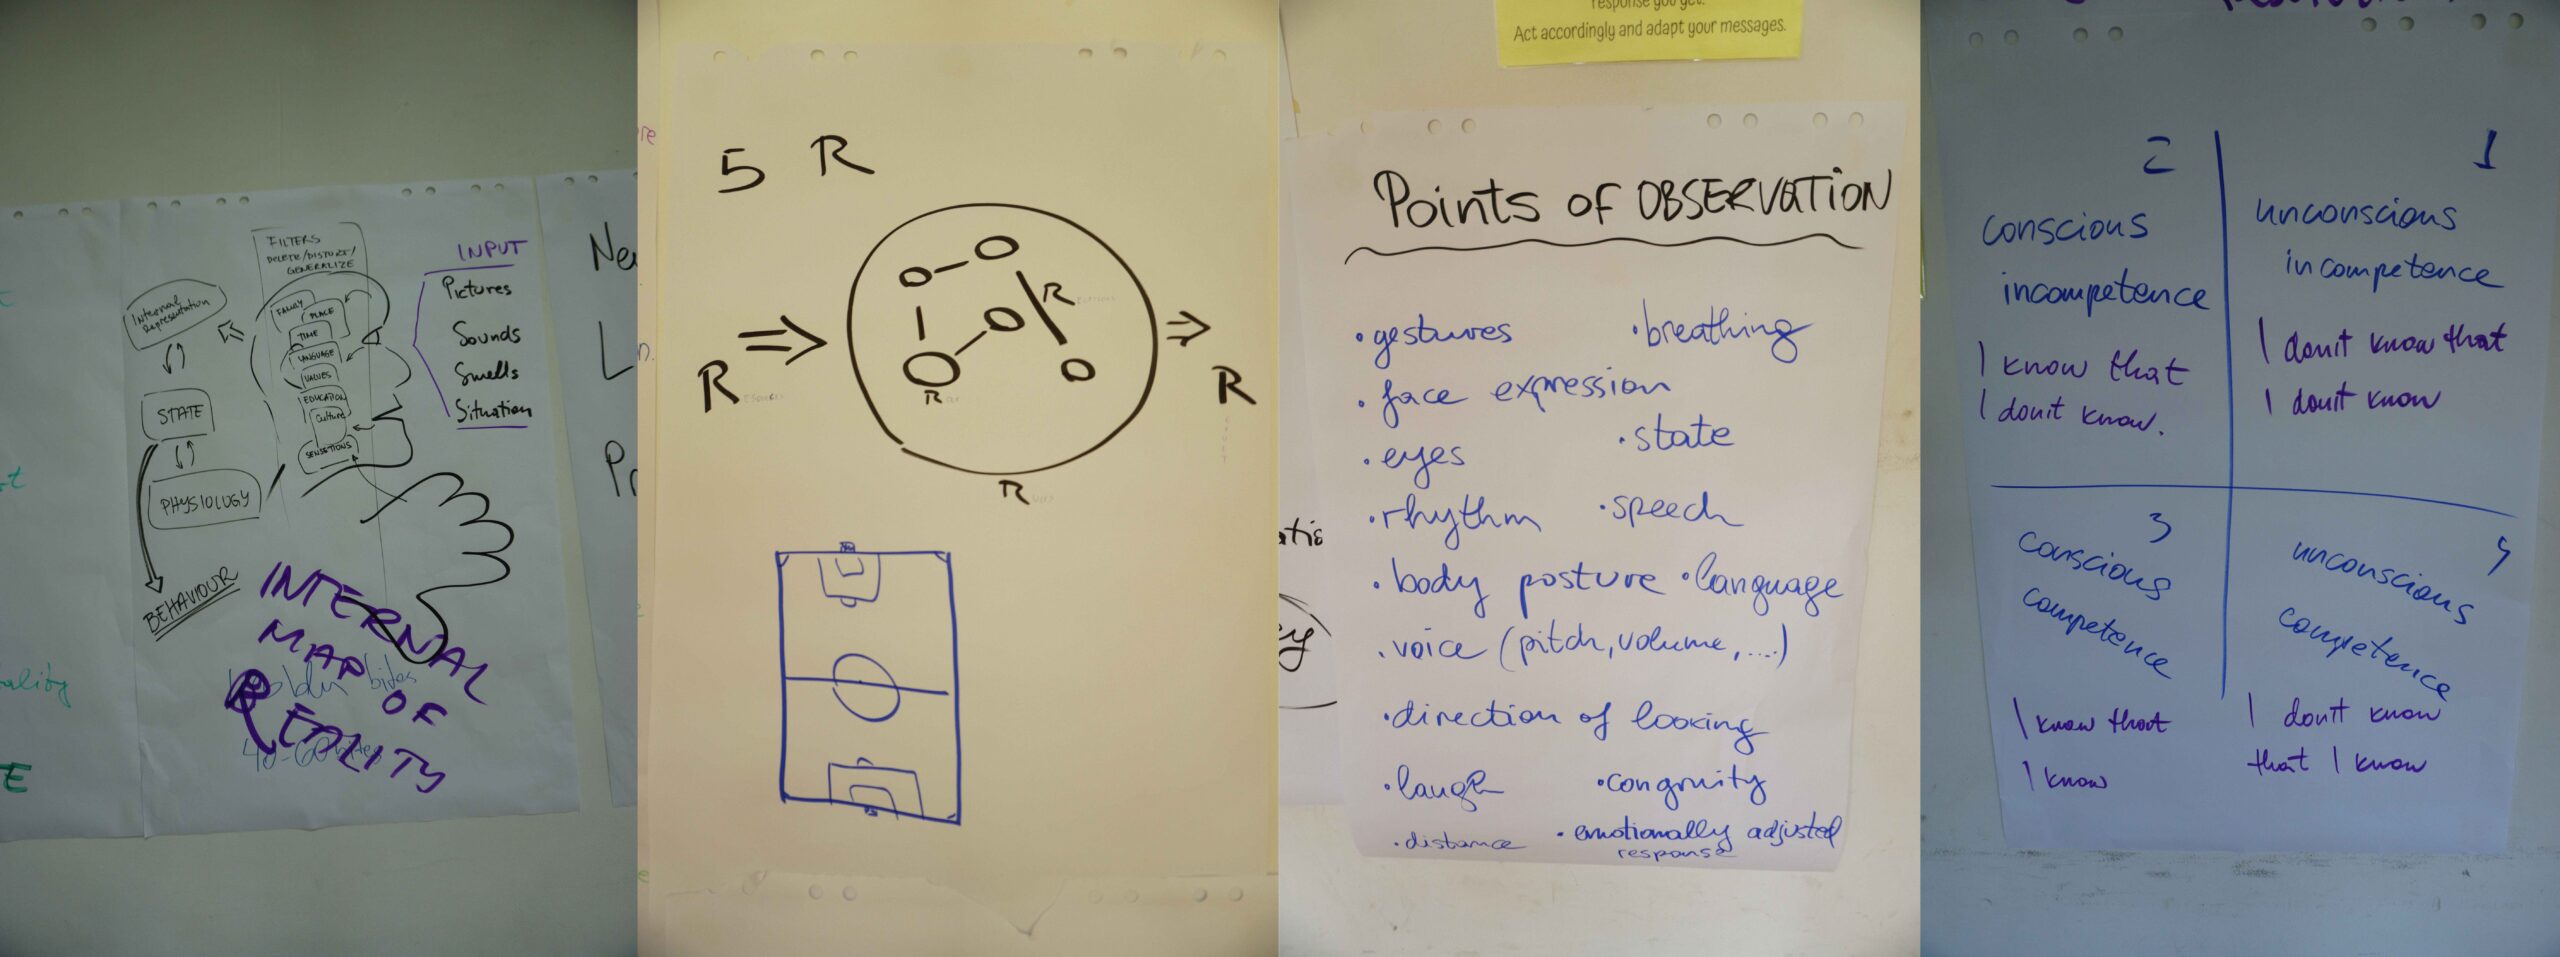 FILTERS
DELETE/DISTORT/
GENERALIZE
INPUT
Pictures
Sounds
Smells
Situation
Internal
Representation
FAMILY
PLACE
TIME
LANGUAGE
VALUES
EDUCATION
Culture
SENSETIONS
STATE
PHYSIOLOGY
BEHAVIOUR
INTERNAL
MAP OF
REALITY
5 R
R
R
R
R
R
response you get.
Act accordingly and adapt your messages.
Points of OBSERVATION
• gestures
• breathing
• face expression
• eyes
• state
• rhythm
• speech
• body posture
• language
• voice (pitch, volume, ....)
• direction of looking
• laugh
• congruity
• distance
• emotionally adjusted
response
2
conscious
incompetence
I know that
I don't know.
1
unconscious
incompetence
I don't know that
I don't know
3
conscious
competence
I know that
I know
4
unconscious
competence
I don't know
that I know